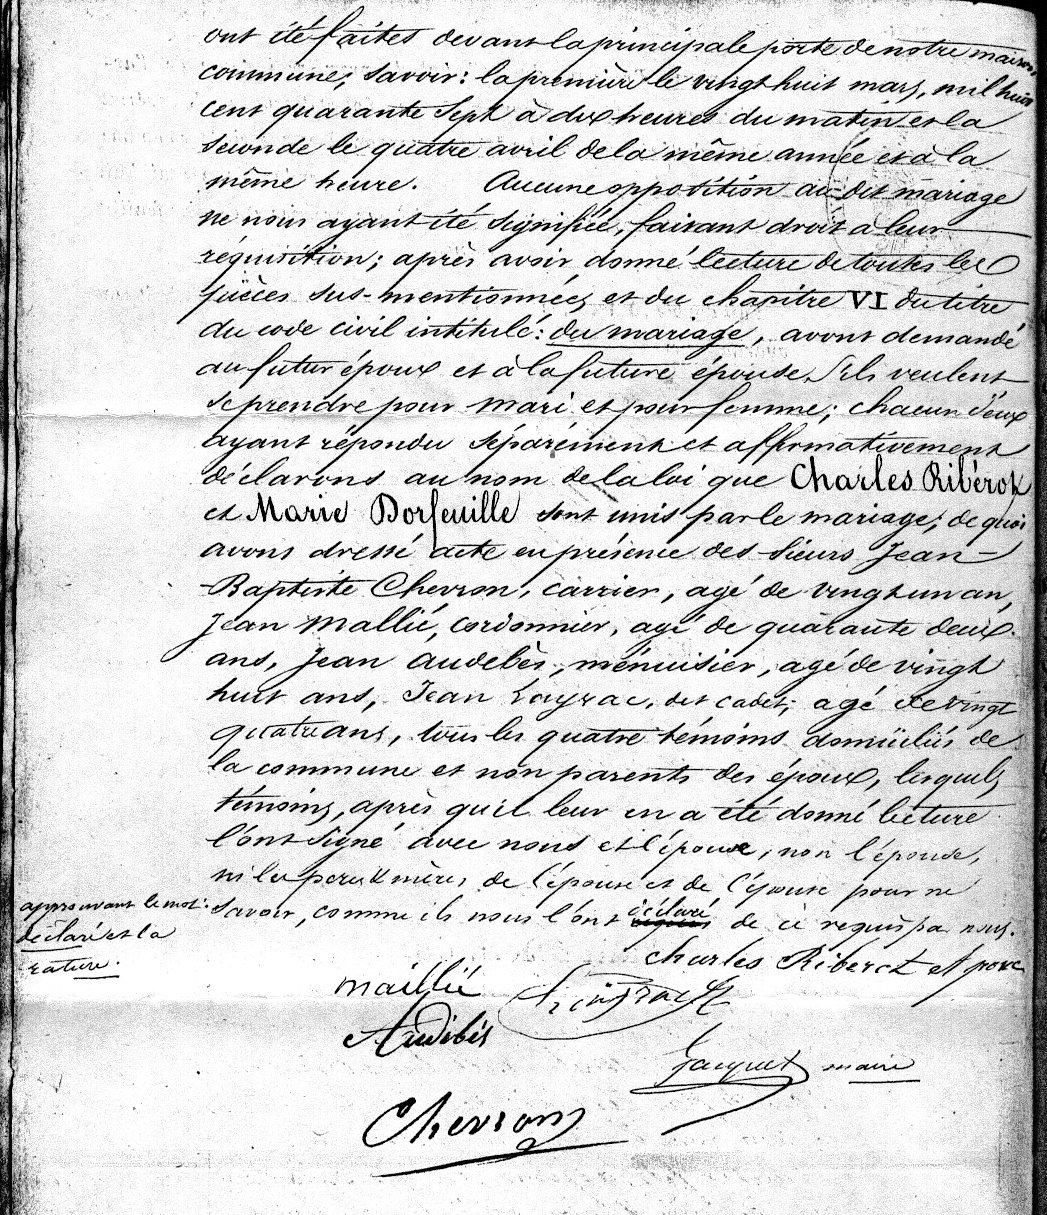 ont été faites devant la principale porte de notre maison
commune, savoir: la première le vingt huit mars, mil huit
cent quarante sept à dix heures du matin et la
seconde le quatre avril de la même année et à la
même heure. Aucune opposition au dit mariage
ne nous ayant été signifiée, faisant droit à leur
réquisition; après avoir donné lecture de toutes les
pièces sus-mentionnées et du chapitre VI du titre
du code civil intitulé: du mariage, avons demandé
au futur époux et à la future épouse s'ils veulent
se prendre pour mari et pour femme; chacun d'eux
ayant répondu séparément et affirmativement
déclarons au nom de la loi que Charles Ribérot
et Marie Dorfeuille sont unis par le mariage; de quoi
avons dressé acte en présence des sieurs Jean-
Baptiste Chevron, carrier, agé de vingt un an,
Jean Mallié, cordonnier, agé de quarante deux
ans, Jean Audebès, menuisier, agé de vingt
huit ans, Jean Layrac, dit cadet, agé de vingt
quatre ans, tous les quatre témoins domiciliés de
la commune et non parents des époux, lesquels
témoins, après qu'il leur en a été donné lecture
l'ont signé avec nous et l'époux, non l'épouse,
ni les pères & mères de l'époux et de l'épouse pour ne
savoir, comme ils nous l'ont déclaré de ce requis pa nous.
approuvant le mot:
déclaré et la
rature.
Charles Riberot et poux
Maillié
Audibès
Jacquet maire
Chevron